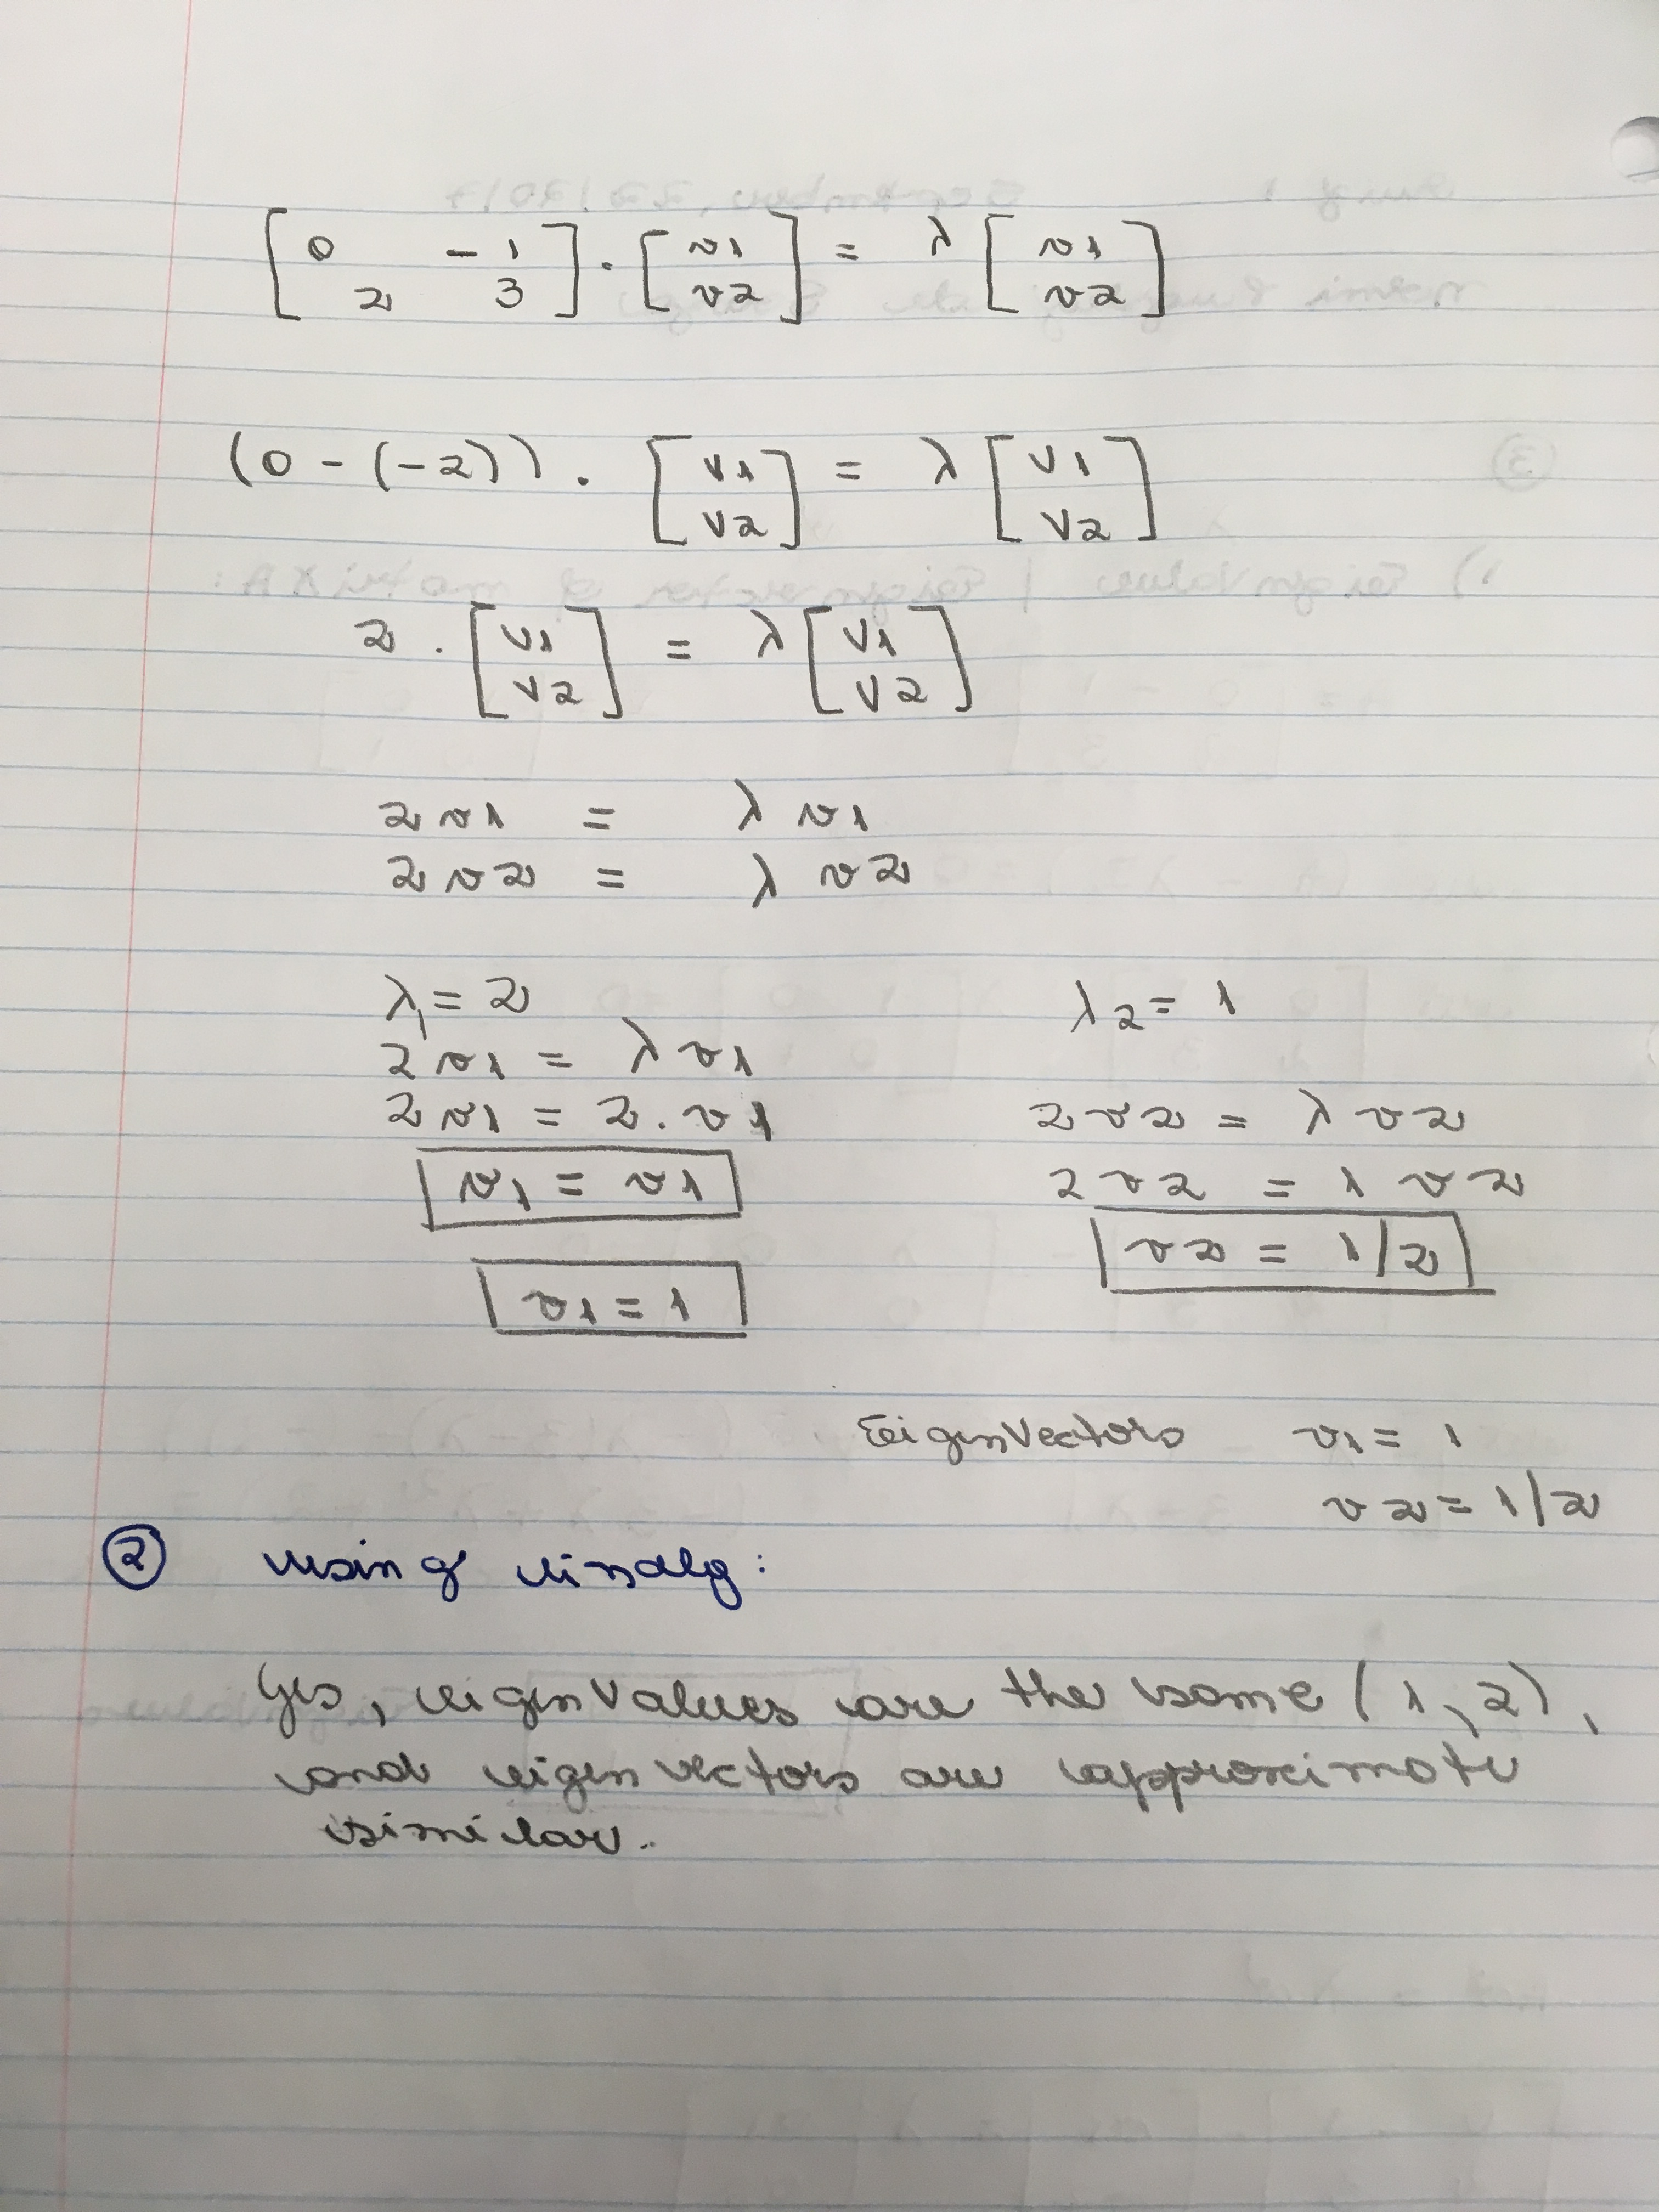 [0 -1
2 3] · [v1
v2] = λ [v1
v2]
(0 - (-2)) · [v1
v2] = λ [v1
v2]
2 · [v1
v2] = λ [v1
v2]
2v1 = λ v1
2v2 = λ v2
λ1 = 2
2v1 = λ v1
2v1 = 2 · v1
v1 = v1
v1 = 1
λ2 = 1
2v2 = λ v2
2v2 = 1 v2
v2 = 1/2
EigenVectors v1 = 1
v2 = 1/2
② using linalg:
Yes, eigenValues are the same (1,2),
and eigenvectors are approximate
similar.